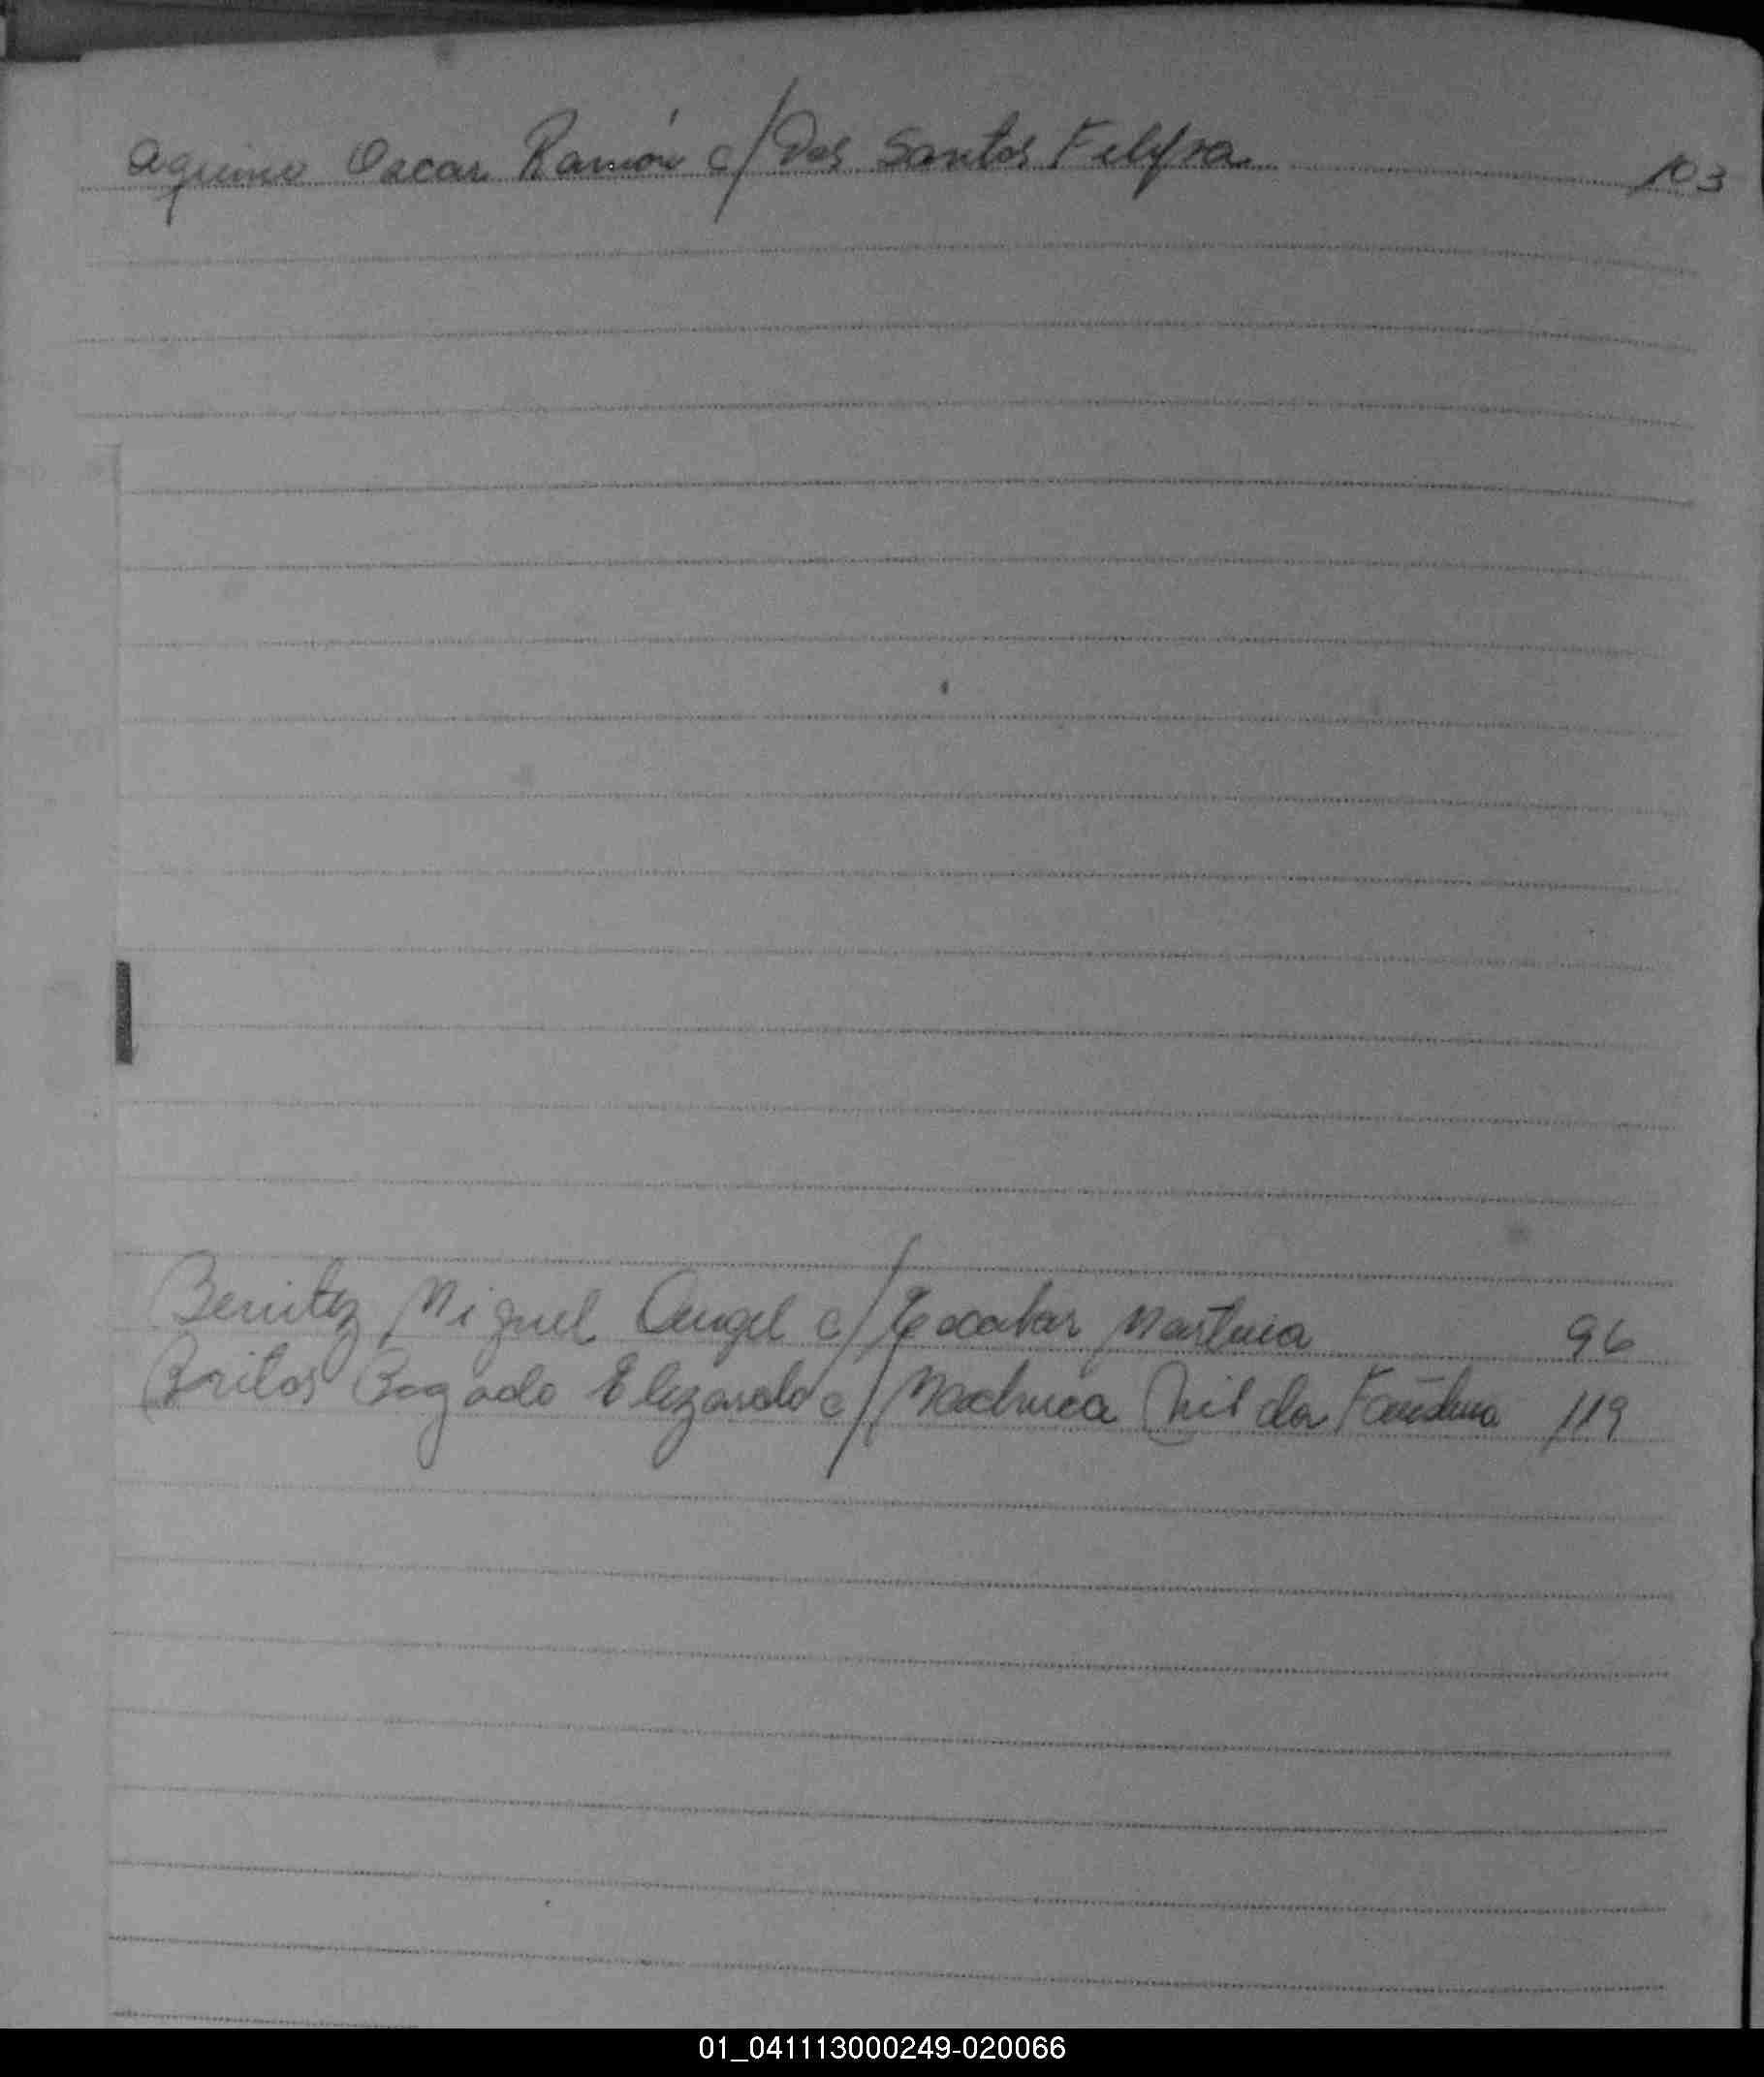 Aquino Oscar Ramón c/ Dos Santos 103
Benitez Miguel Angel c/ Escobar Martina 96
Britos Bogado Elizardo c/ Machuca Nilda 119
01_041113000249-020066